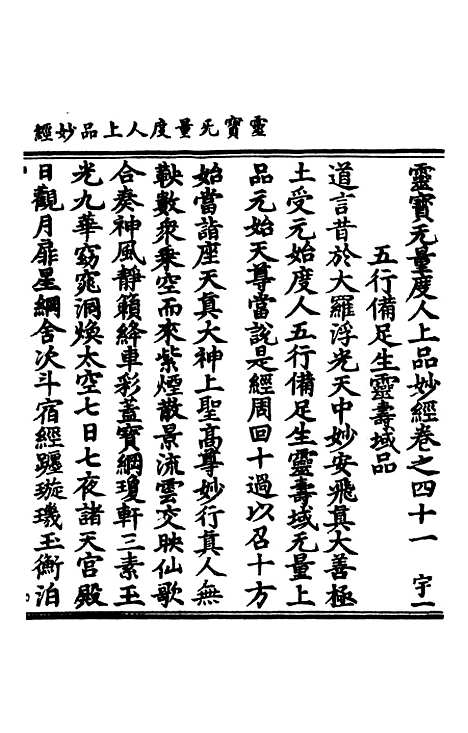 靈寶无量度人上品妙經
靈寶无量度人上品妙經卷之四十一 宇一
五行備足生靈壽域品
道言昔於大羅浮光天中妙安飛真大善極
土受元始度人五行備足生靈壽域无量上
品元始天尊當說是經周回十過以召十方
始當詣座天真大神上聖高尊妙行真人無
鞅數衆乘空而來紫煙散景流雲交映仙歌
合奏神風靜籟絳車彩蓋寶綱瓊軒三素玉
光九華窈窕洞煥太空七日七夜諸天宮殿
日觀月扉星綱舍次斗宿經躔璇璣玉衡泊